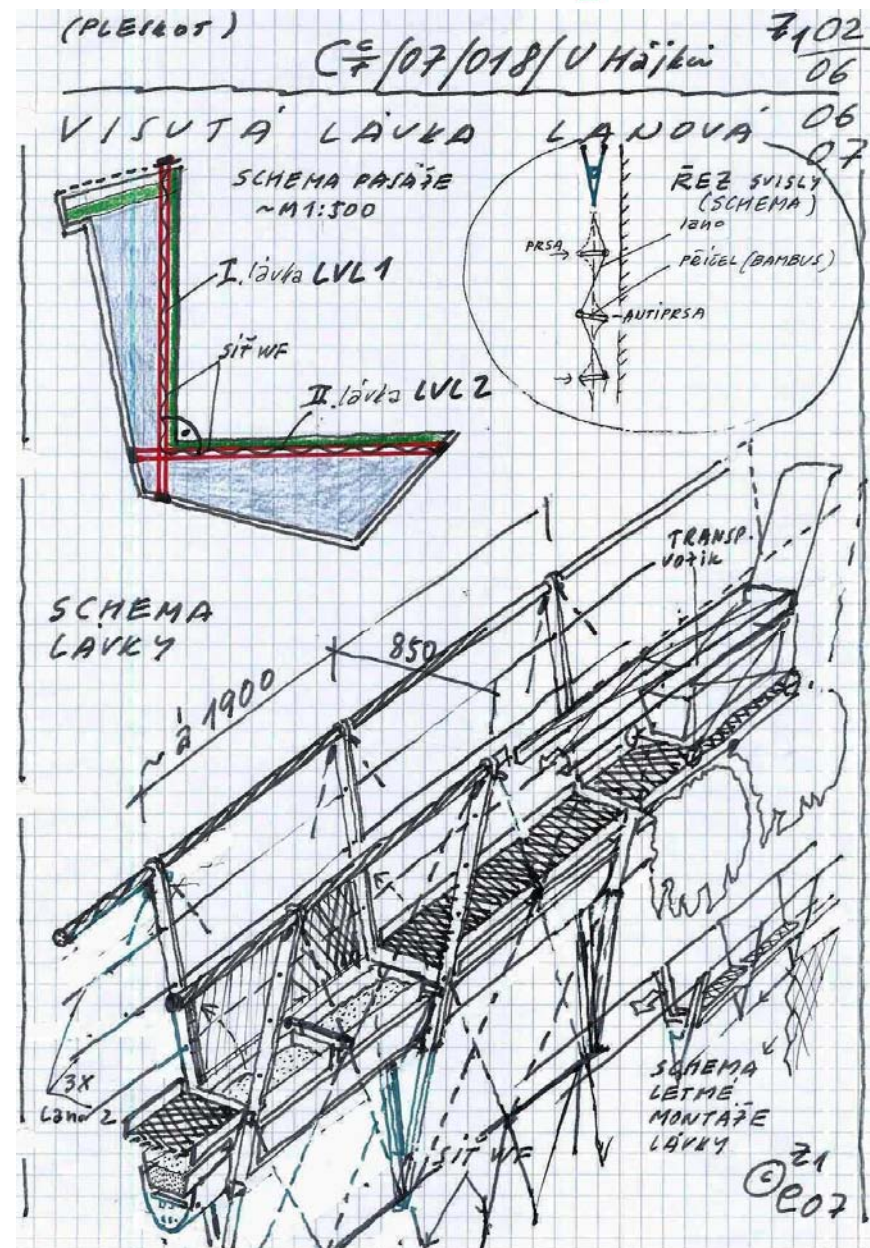 (PLESKOT)
C 07/018/ V Hájku
Z1 02
06
06
07
VISUTÁ LÁVKA LANOVÁ
SCHEMA PASÁŽE
~M1:500
I. lávka LVL1
SÍŤ WF
II. lávka LVL2
ŘEZ SVISLÝ
(SCHEMA)
lano
PRSA
PŘÍČEL (BAMBUS)
ANTIPRSA
TRANSP.
VOZÍK
SCHEMA
LÁVKY
850
~ á 1900
3X
Lano 2
SÍŤ WF
SCHEMA
LETMÉ
MONTÁŽE
LÁVKY
© Z1
07